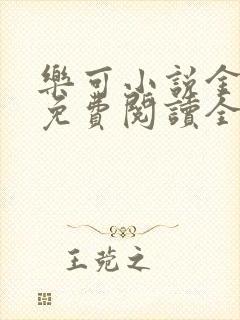 樂可小說全
免費閱讀全
王菀之